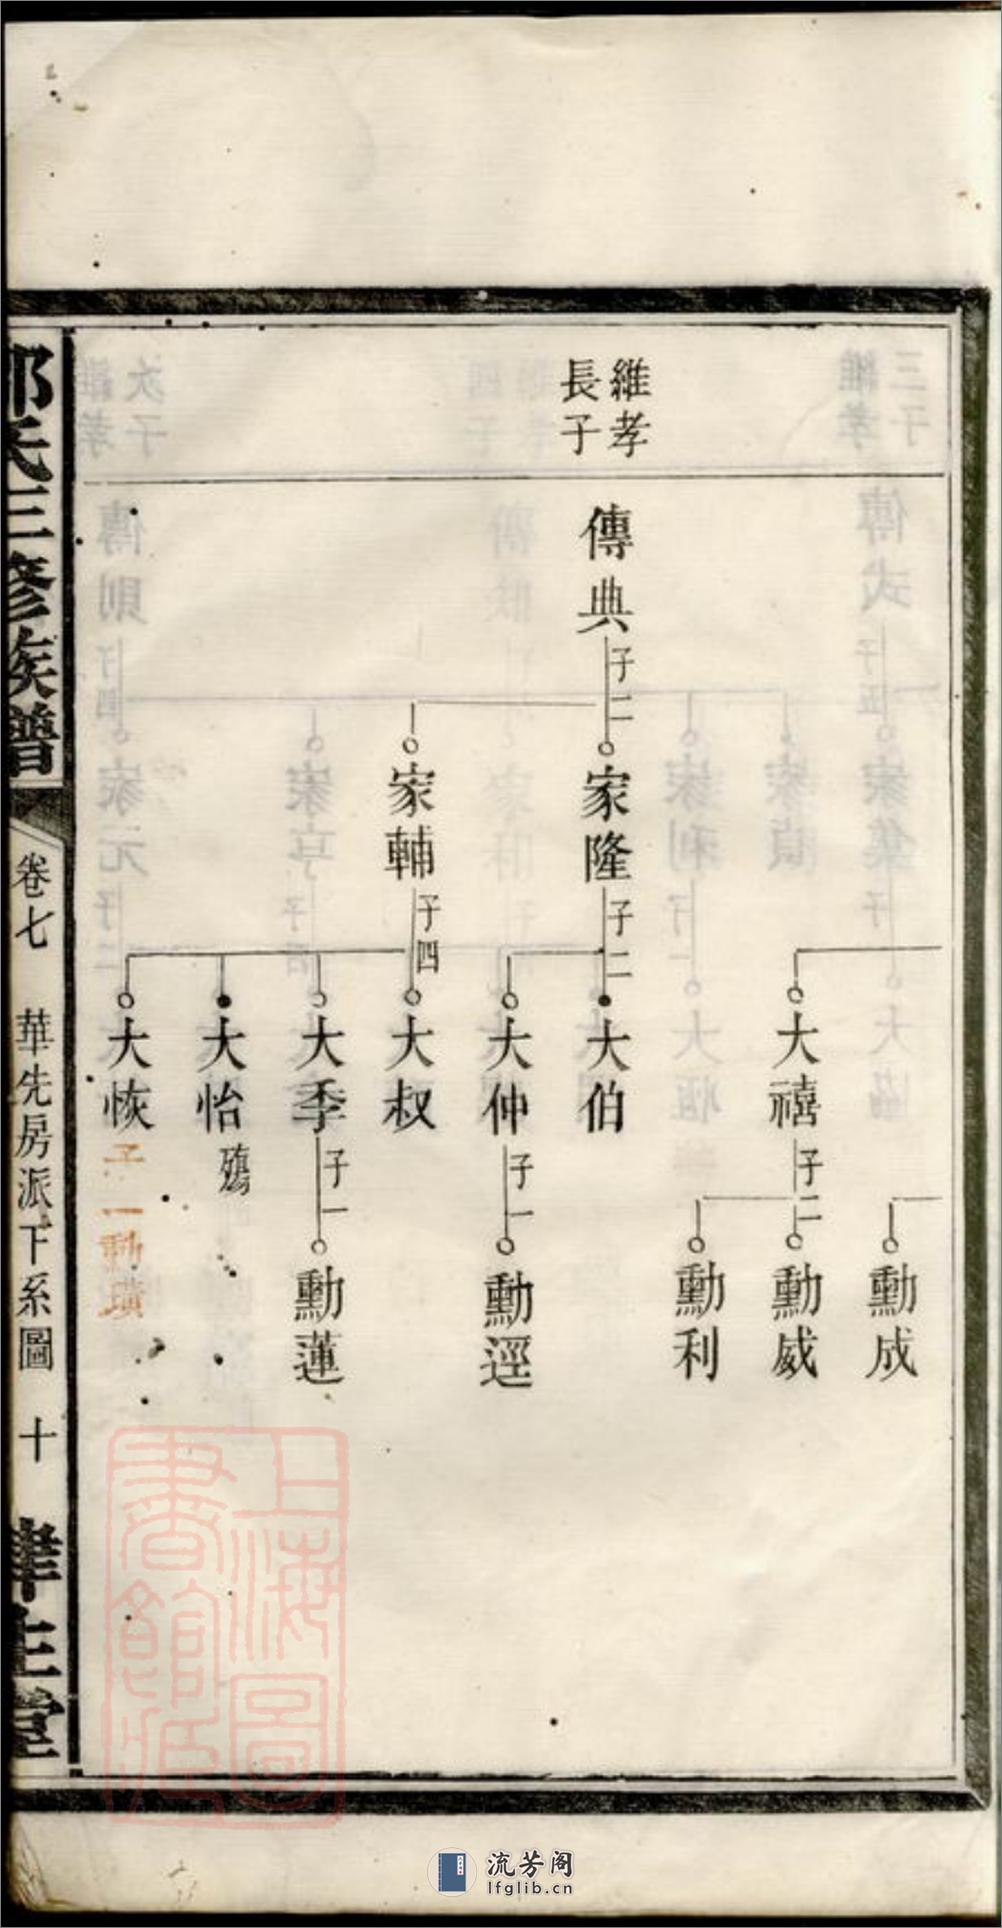 維孝
長子
傳典
子二
家隆
子二
家輔
子四
大禧
子二
大伯
大仲
子一
大叔
大季
子一
大怡
殤
大恢
子一勳璜
勳成
勳威
勳利
勳逕
勳蓮
氏三修族譜
卷七
華先房派下系圖
十
上海圖書館藏
流芳阁
lfglib.cn